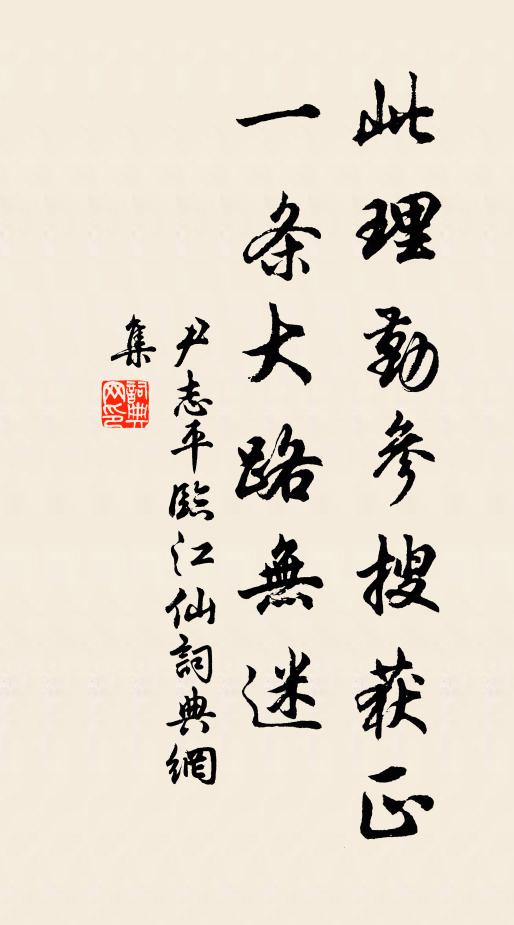 此理勤參搜获正
一条大路無迷
尹志平臨江仙詞典網
集
詞典网印